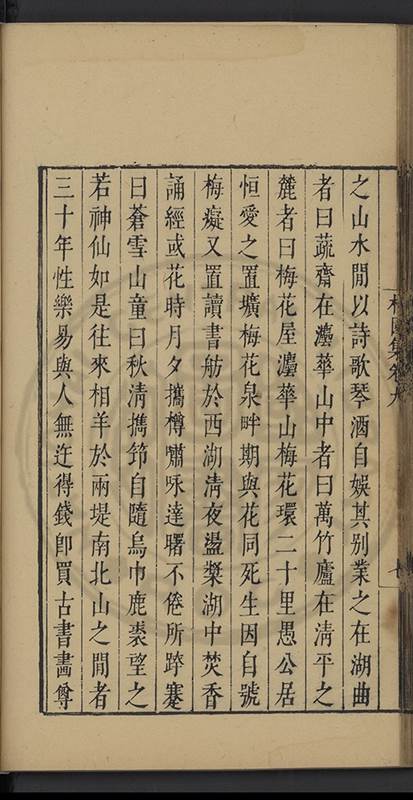 之山水閒以詩歌琴酒自娛其别業之在湖曲
者曰蔬齋在瀍華山中者曰萬竹廬在清平之
麓者曰梅花屋瀍華山梅花環二十里愚公居
恒愛之置壙梅花泉畔期與花同死生因自號
梅癡又置讀書舫於西湖清夜盪槳湖中焚香
誦經或花時月夕攜樽嘯咏達曙不倦所跨蹇
曰蒼雪山童曰秋清攜笻自隨烏巾鹿裘望之
若神仙如是往來相羊於兩堤南北山之閒者
三十年性樂易與人無迕得錢卽買古書畵尊
集卷九